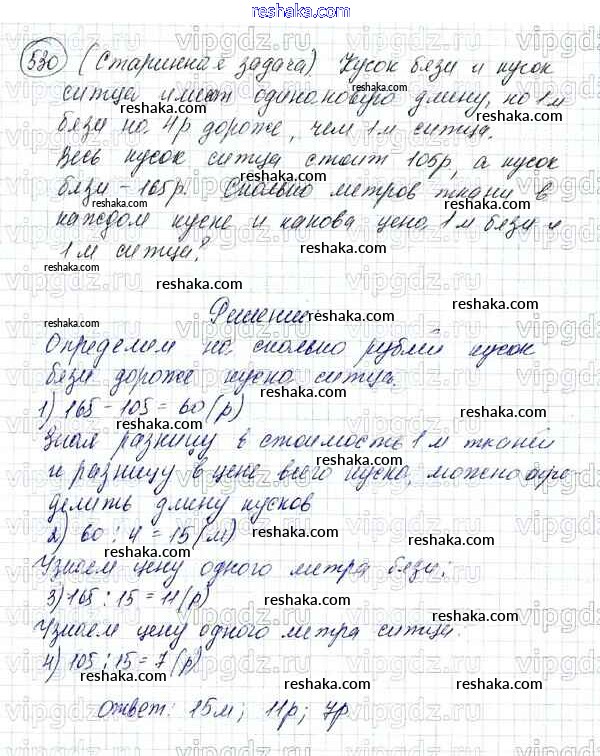 reshaka.com
530 (Старинная задача). Кусок бязи и кусок
ситца имеют одинаковую длину, но 1 м
бязи на 4р дороже, чем 1 м ситца.
Весь кусок ситца стоит 105р, а кусок
бязи - 165р. Сколько метров ткани в
каждом куске и какова цена 1 м бязи и
1 м ситца?
Решение
Определим на сколько рублей кусок
бязи дороже куска ситца.
1) 165 - 105 = 60 (р)
Зная разницу в стоимость 1 м тканей
и разницу в цене всего куска, можно опре-
делить длину кусков
2) 60 : 4 = 15 (м)
Узнаем цену одного метра бязи:
3) 165 : 15 = 11 (р)
Узнаем цену одного метра ситца.
4) 105 : 15 = 7 (р)
ответ: 15м; 11р; 7р